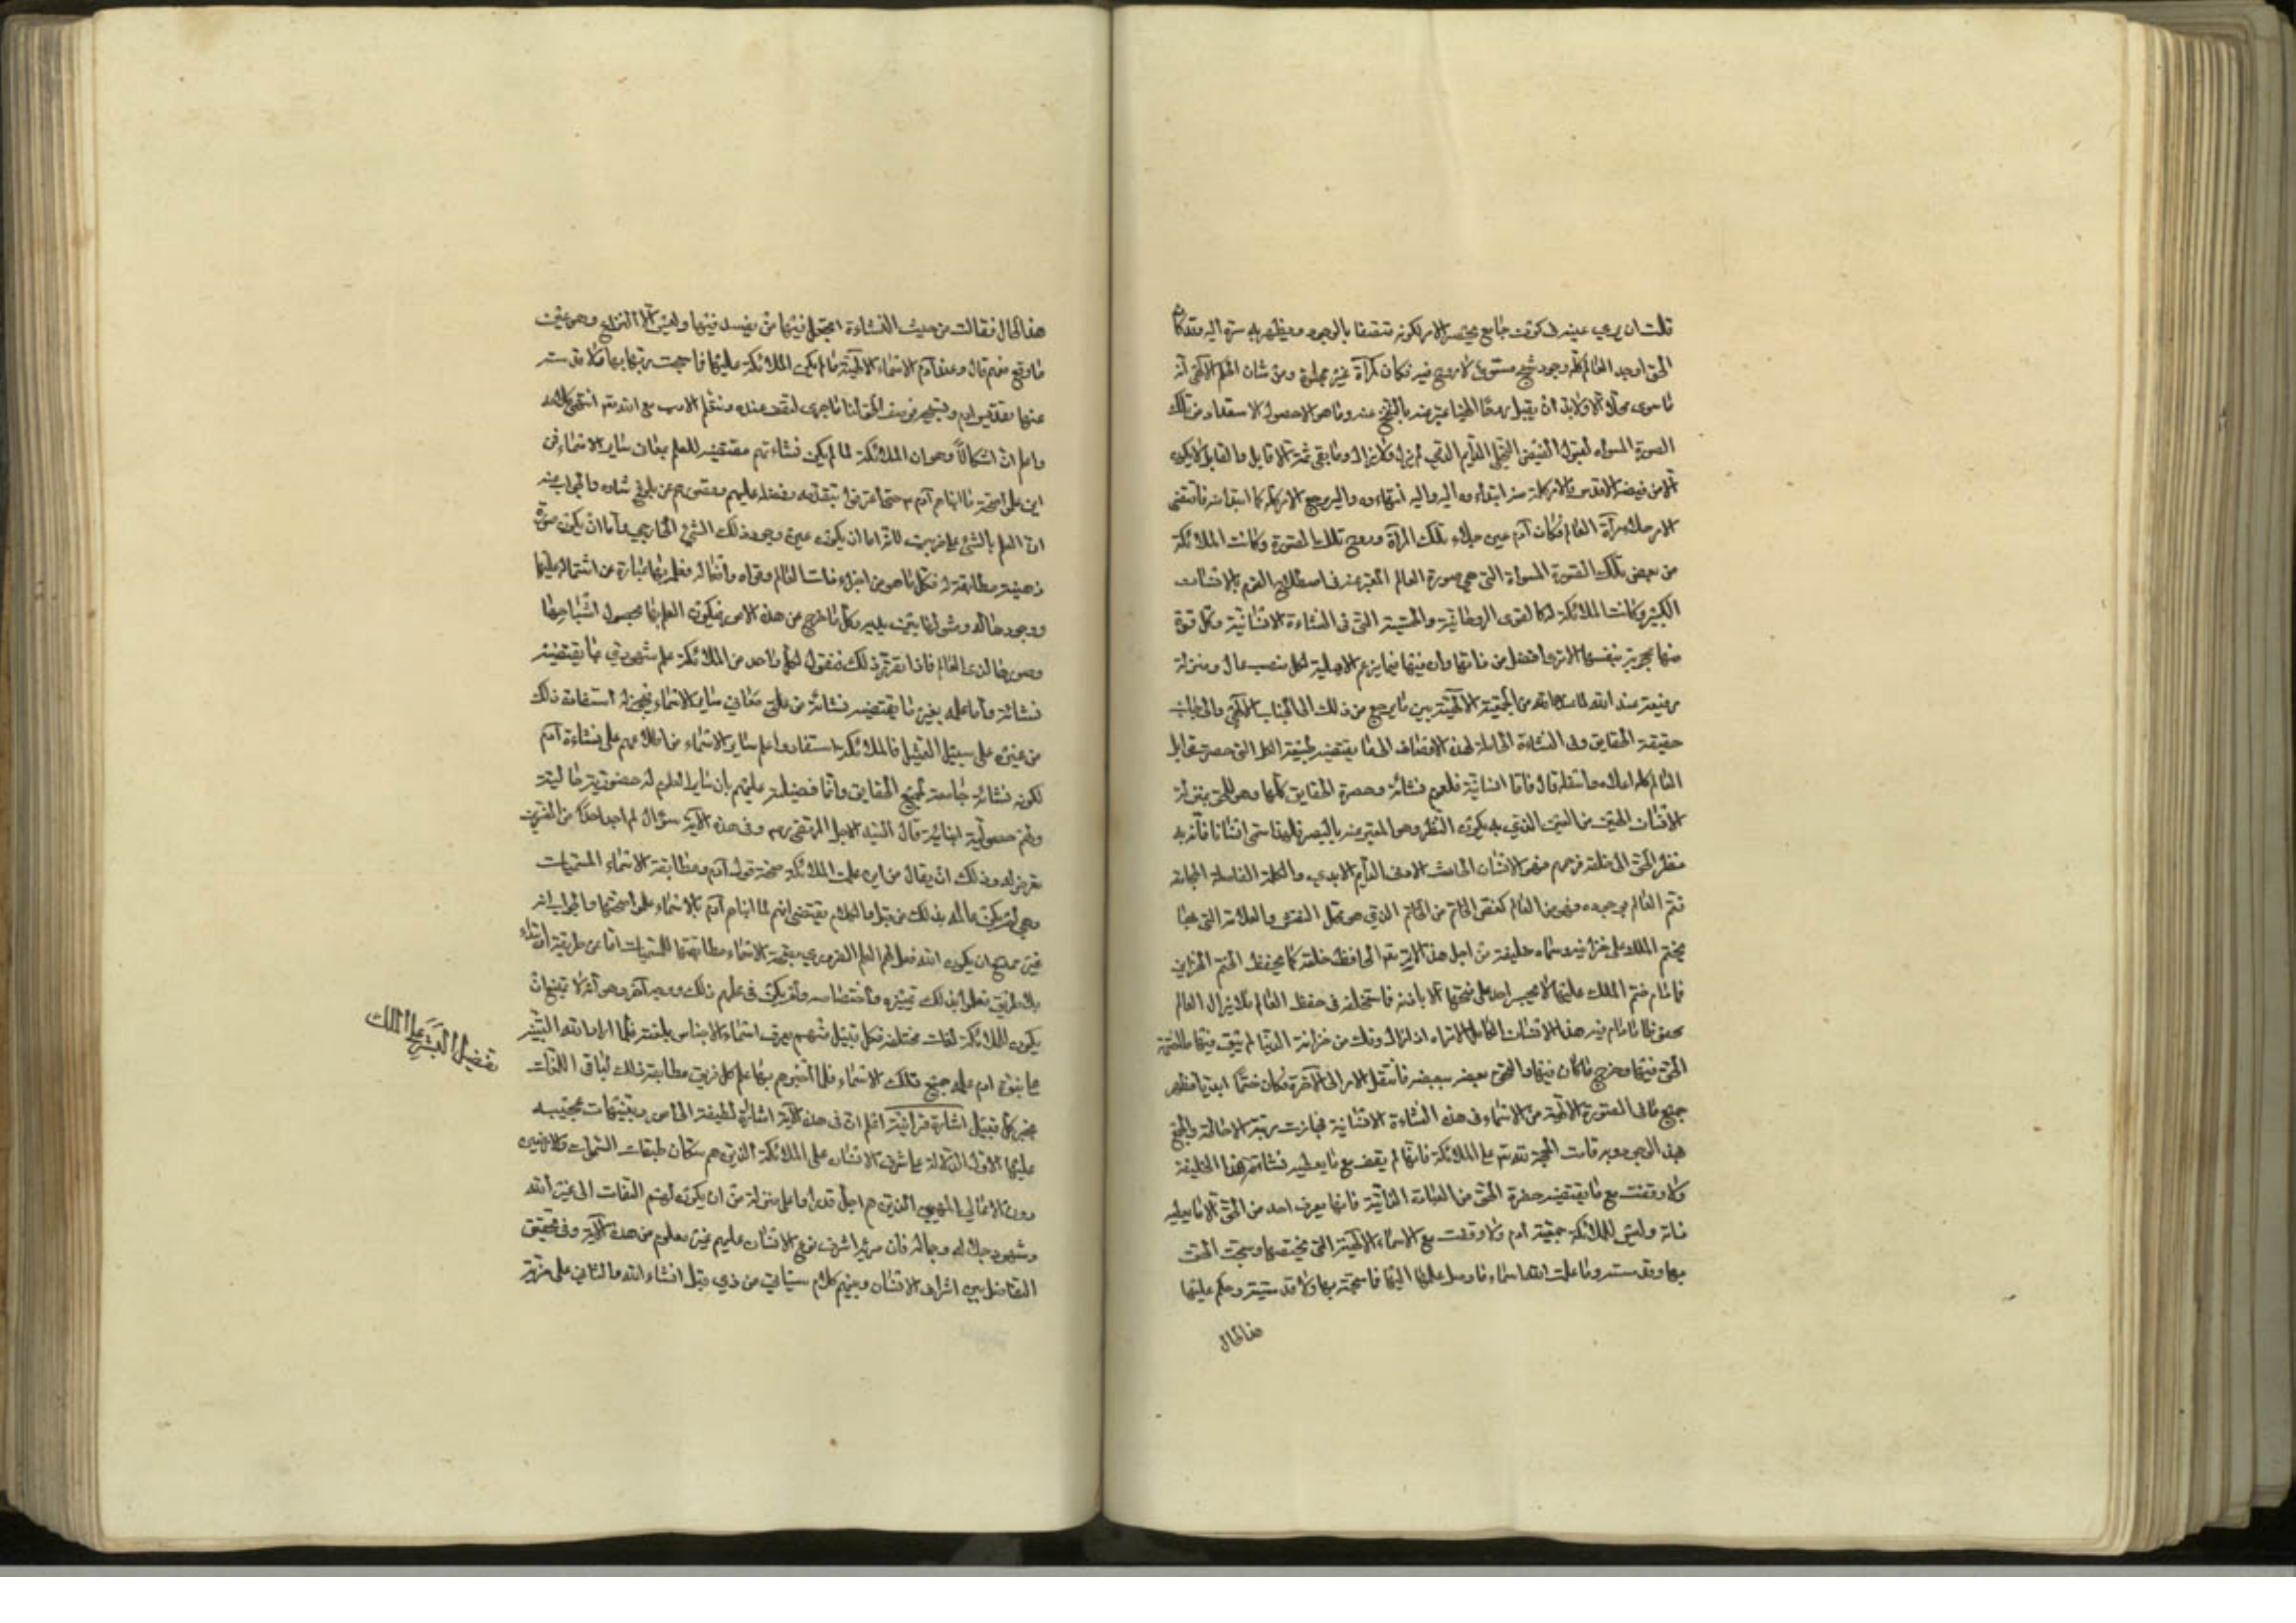 قلت ان يرى عينه فى كون جامع يحصر الامر لكونه متصفا بالوجود ويظهر به سره اليه وقد كان
الحق اوجد العالم كله وجود شبح مستوى لا روح فيه فكان كمرآة غير مجلوة ومن شان الحكم الالهى انه
ما سوى محلا الا ولابد ان يقبل روحا الهيا عبر عنه بالنفخ عنه وما هو الا حصول الاستعداد من تلك
الصورة المسواة لقبول الفيض التجلى الدايم الذي لم يزل ولا يزال وما بقى ثمة الا قابل والقابل لا يكون
الا من فيضه الاقدس فالامر كله منه ابتداؤه اليه واليه انتهاؤه واليه يرجع الامر كله كما ابتدا منه فاقتضى
الامر جلاء مرآة العالم فكان آدم عين جلاء تلك المرآة وروح تلك الصورة وكانت الملائكة
من بعض تلك الصورة المسواة التى هى صورة العالم المعبر عنه فى اصطلاح القوم بالانسان
الكبير وكانت الملائكة له كالقوى الروحانية والحسية التى فى النشاءة الانسانية وكل قوة
منها محجوبة بنفسها لا ترى افضل من ذاتها وان فيها فيما يزعم الاهلية لكل منصب عال ومنزلة
رفيعة عند الله لما عندها من الجمعية الالهية بين ما يرجع من ذلك الى الجناب الالهى والى جانب
حقيقة الحقايق وفى النشاءة الحاملة لهذه الاوصاف الى ما يقتضيه طبيعة الكل التى حصرت قوابل
العالم كله اعلاه واسفله قال فاما انسانية فلعموم نشاته وحصره الحقايق كلها وهو للحق بمنزلة
الانسان العين من العين الذي به يكون النظر وهو المعبر عنه بالبصر فلهذا سمى انسانا فانه به
نظر الحق الى خلقه فرحمهم فهو الانسان الحادث الازلى الدايم الابدي والكلمة الفاصلة الجامعة
فتم العالم بوجوده فهو من العالم كفص الخاتم من الخاتم الذي هو محل النقش والعلامة التى بها
يختم الملك على خزانيه وسماه خليفة من اجل هذا لانه تعم الحافظ خلقه كما يحفظ الختم الخزاين
فما دام ختم الملك عليها لا يجسر احد على فتحها الا باذنه فاستخلفه فى حفظ العالم فلا يزال العالم
محفوظا ما دام فيه هذا الانسان الكامل الا تراه اذا زال وفك من خزانة الدنيا لم يبق فيها ما اختزنه
الحق فيها وخرج ما كان فيها والتحق بعضه ببعضه فانتقل الامر الى الآخرة فكان ختما ابديا فظهر
جميع ما فى الصورة الالهية من الاسماء فى هذه النشاءة الانسانية فحازت رتبة الاحاطة والجمع
بهذا الوجود وبه قامت الحجة لله تعم على الملائكة فانها لم يقف مع ما يعطيه نشاة هذا الخليفة
ولا وقفت مع ما يقتضيه حضرة الحق من العبادة الذاتية فانه ما يعرف احد من الحق الا ما يعطيه
ذاته وليس للملائكة جمعية آدم ولا وقفت مع الاسماء الالهية التى تخصها وسبحت الحق
بها وقدسته وما علمت ان لله اسماء ما وصل علمها اليها فما سبحته بها ولا قدسته وحكم عليها
هذا الحال
هذا الحال فقالت من حيث النشاءة اتجعل فيها من يفسد فيها وليس الا النزاع وهو عين
ما وقع منهم قال وعند آدم الاسماء الالهية ما لم يكن الملائكة عليها فما سبحت ربها بها ولا قدسته
عنها تقديس ادم وتسبيحه فوصف الحق لنا ما جرى لنقف عنده ونتعلم الادب مع الله تعم انتهى كلامه
واعلم ان اشكالا وهو ان الملائكة لما لم يكن نشاءتهم مقتضية للعلم بمعان ساير الاسماء فمن
اين علموا صحة ما انباهم آدم حتى اعترفوا بتقدمه وفضله عليهم وقصورهم عن بلوغ شاوه والجواب عنه
ان العلم بالشئ على ضربين لانه اما ان يكون عين وجود ذلك الشئ الخارجي واما ان يكون صورة
ذهنية مطابقة له فكل ما هو من اجزاء ذات العالم وقواه وافعاله فعلمه بها عبارة عن اشتماله عليها
ووجودها له وشولها بين يديه وكل ما خرج من هذه الامور فيكون العلم بها بحصول اشباحها
وصورها لذى العالم فاذا تقرر ذلك فنقول لكل واحد من الملائكة علم شهودي بما يقتضيه
نشاته واما علمه بغير ما يقتضيه نشاته من معانى ساير الاسماء فيجوز له استفادة ذلك
من غيره على سبيل التمثيل فالملائكة استفادوا علم ساير الاسماء من اطلاعهم على نشاءة آدم
لكونه نشاته جامعة لجميع الحقايق وانما فضيلته عليهم بان ساير العلوم له حضورية حالية
ولهم حصولية انبائية قال السيد الاجل المرتضى ره وفى هذه الآية سؤال لم اجد احدا من المفسرين
تعرض له وذلك ان يقال من اين علمت الملائكة صحة قول آدم ومطابقة الاسماء المسميات
وهى لم يكن عالمة بذلك من قبل والكلام يقتضى انهم لما انباهم آدم بالاسماء علموا صحتها والجواب انه
غير ممتنع ان يكون الله فعل لهم العلم الضروري بصحة الاسماء ومطابقتها للمسميات اما من طريقة او ابتداء
بلا طريق فعلموا بذلك تمييزه واختصاصه ولم يكن فى علمهم ذلك ووجه آخر وهو انه لا يمتنع ان
يكون للملائكة لغات مختلفة فكل قبيل منهم يعرف اسماء الاجناس بلغته فلما اراد الله التنبيه
على نبوة ادم علمه جميع تلك الاسماء فلما انبئهم بها علم كل فريق مطابقة ذلك لباقى اللغات
بخبر كل قبيل اشارة قرانية اعلم ان فى هذه الآية اشارة لطيفة الى اس وتنبيهات عجيبه
عليها الاول الدلالة على شرف الانسان على الملائكة الذين هم سكان طبقات السموات والارضين
دون الاعالى المهيمين الذين هم اجل قدرا واعلى منزلة من ان يكون لهم التفات الى غير الله
وشهود جلاله وجماله فان مزية اشرف نوع الانسان عليهم غير معلوم من هذه الآية وفى تحقيق
التفاضل بين اشراف الانسان وبينهم كلام سياتي من ذي قبل انشاء الله والثاني على مزية
تفضيل البشر على الملك